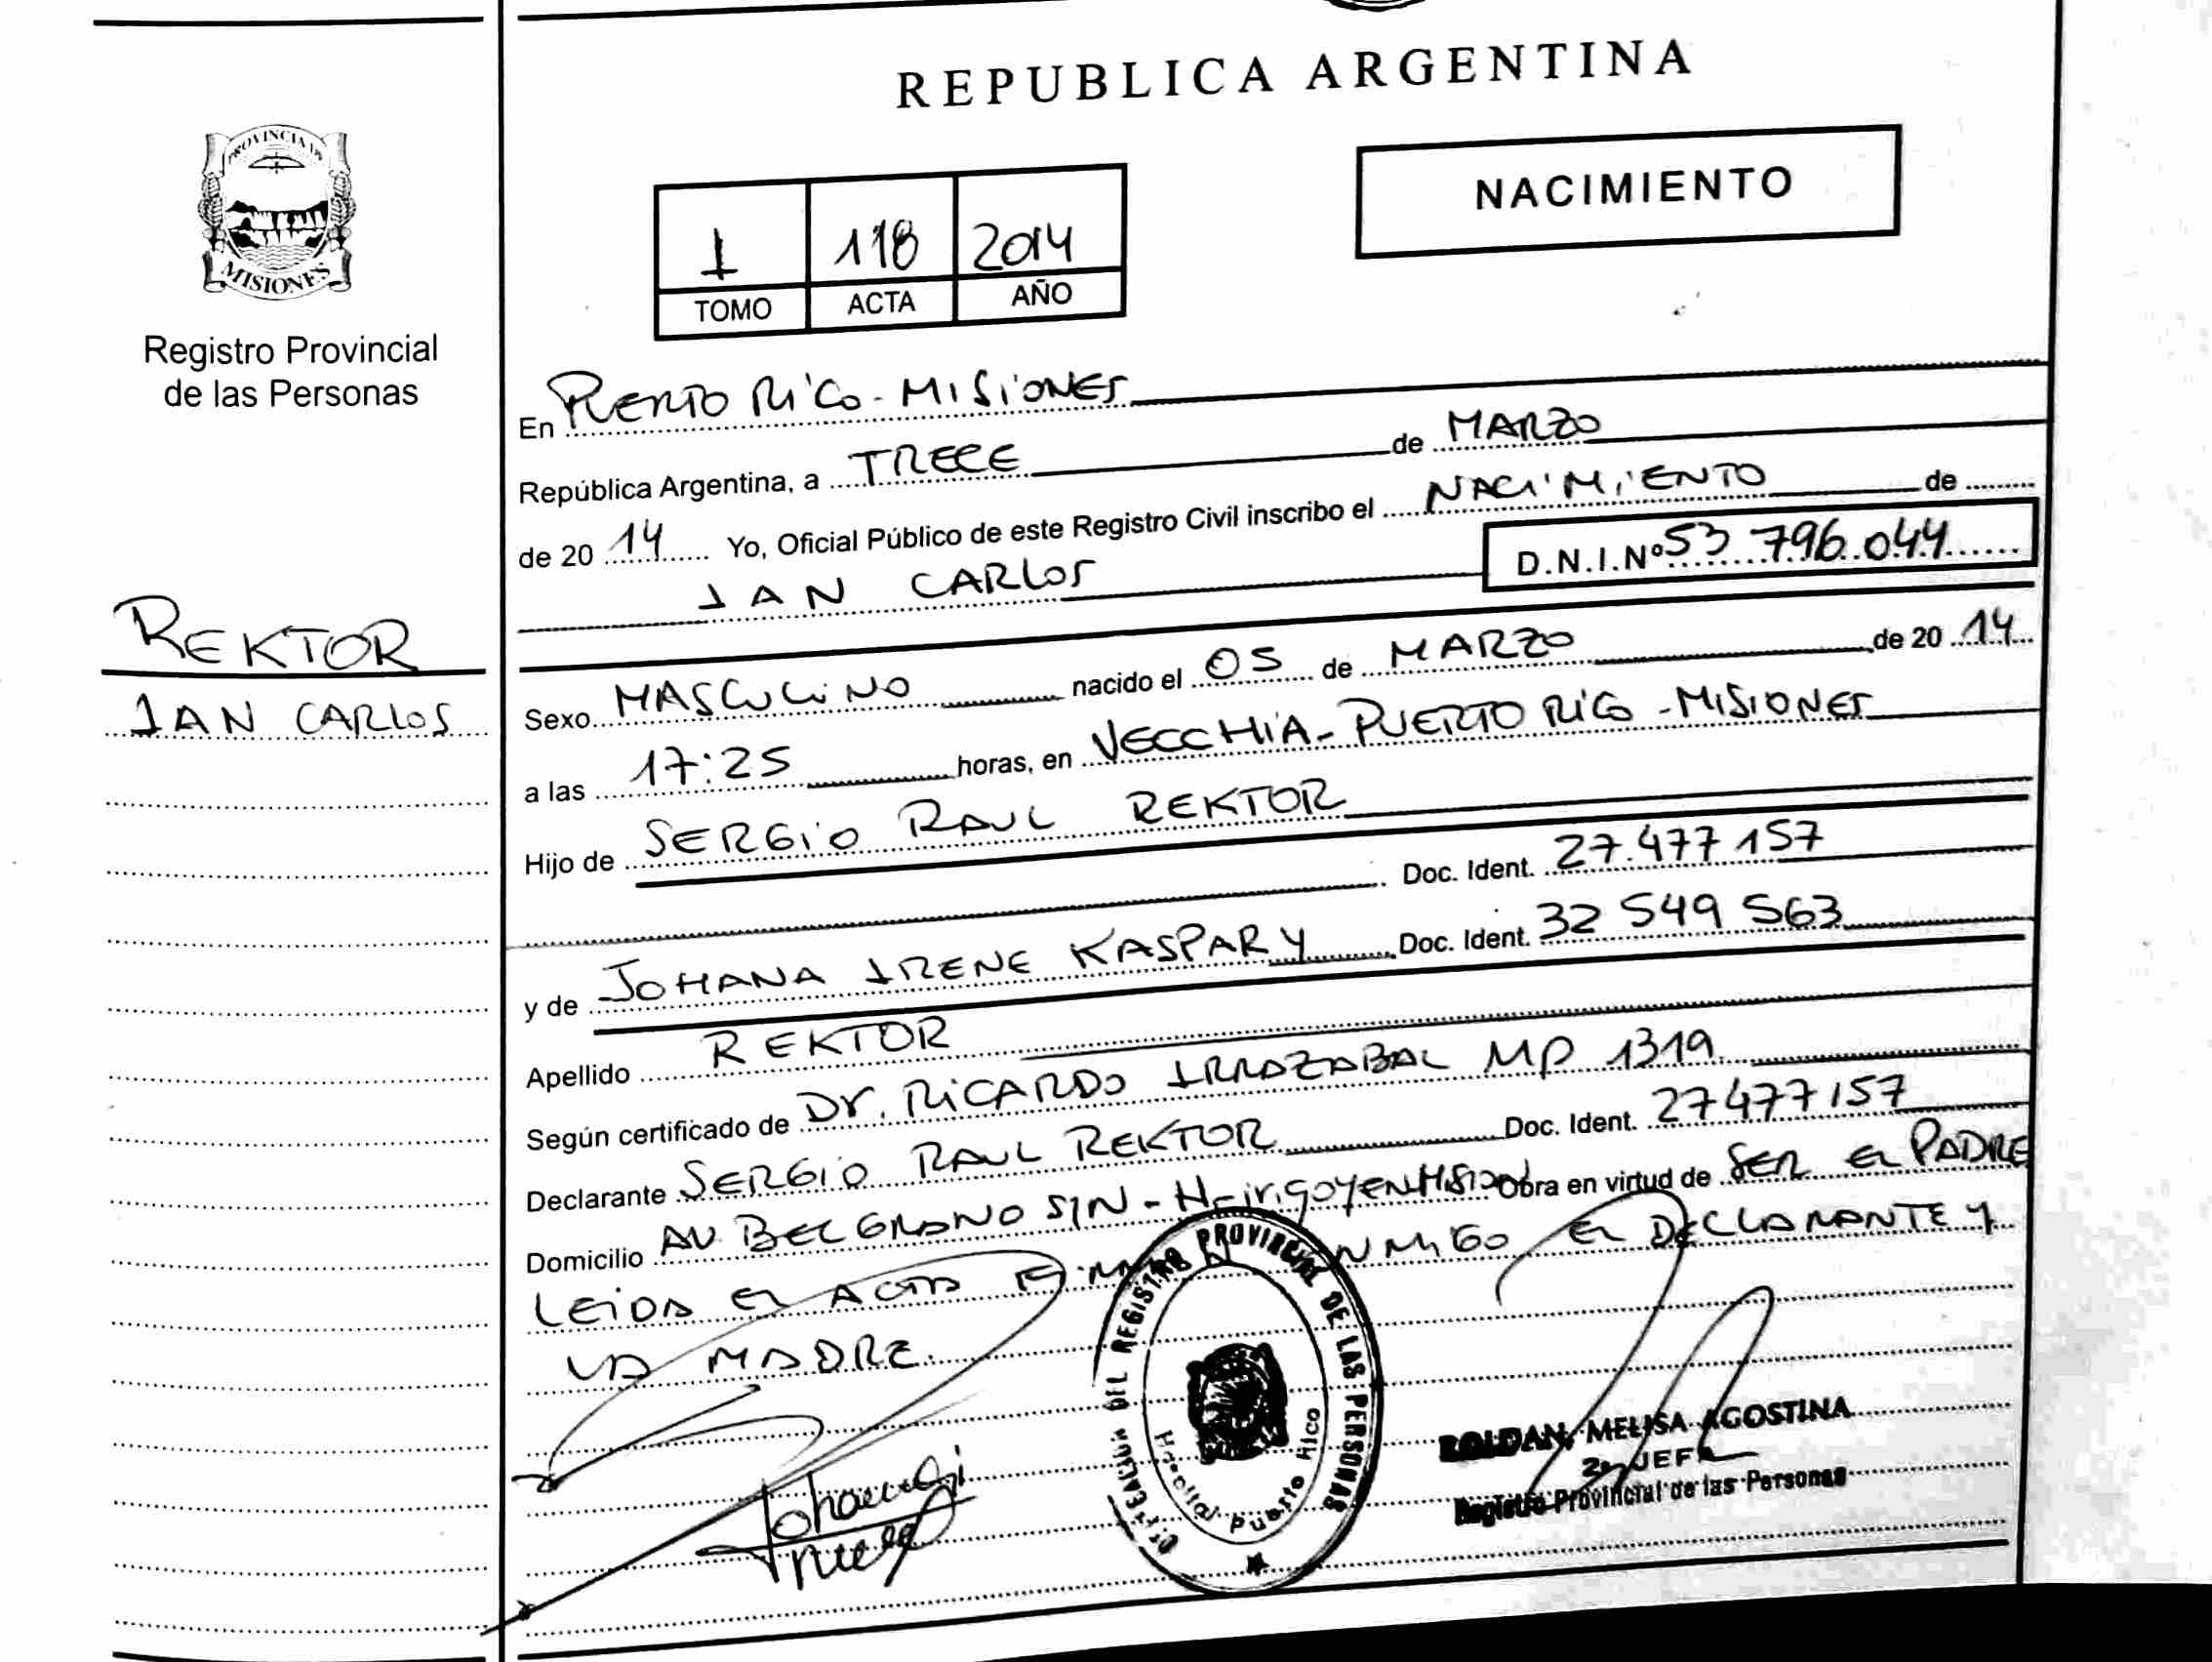 REPUBLICA ARGENTINA
PROVINCIA DE
MISIONES
Registro Provincial
de las Personas
NACIMIENTO
1 118 2014
TOMO ACTA AÑO
En PUERTO RICO - MISIONES
República Argentina, a TRECE de MARZO
de 20 14 Yo, Oficial Público de este Registro Civil inscribo el NACIMIENTO de
IAN CARLOS D.N.I.Nº 53 796.044
REKTOR
IAN CARLOS
Sexo MASCULINO nacido el 05 de MARZO de 20 14
a las 17:25 horas, en VECCHIA - PUERTO RICO - MISIONES
Hijo de SERGIO RAUL REKTOR
Doc. Ident. 27.477 157
y de JOHANA IRENE KASPARY Doc. Ident. 32 549 563
Apellido REKTOR
Según certificado de Dr. RICARDO IRRAZABAL MP 1319
Declarante SERGIO RAUL REKTOR Doc. Ident. 27477157
Domicilio AV BELGRANO S/N - H. irigoyen Obra en virtud de SER EL PADRE
LEIDA EL ACTA EL DECLARANTE Y
LA MADRE.
DEL REGISTRO PROVINCIAL DE LAS PERSONAS
Puerto Rico
ROLDAN, MELISA AGOSTINA
JEFA
Registro Provincial de las Personas